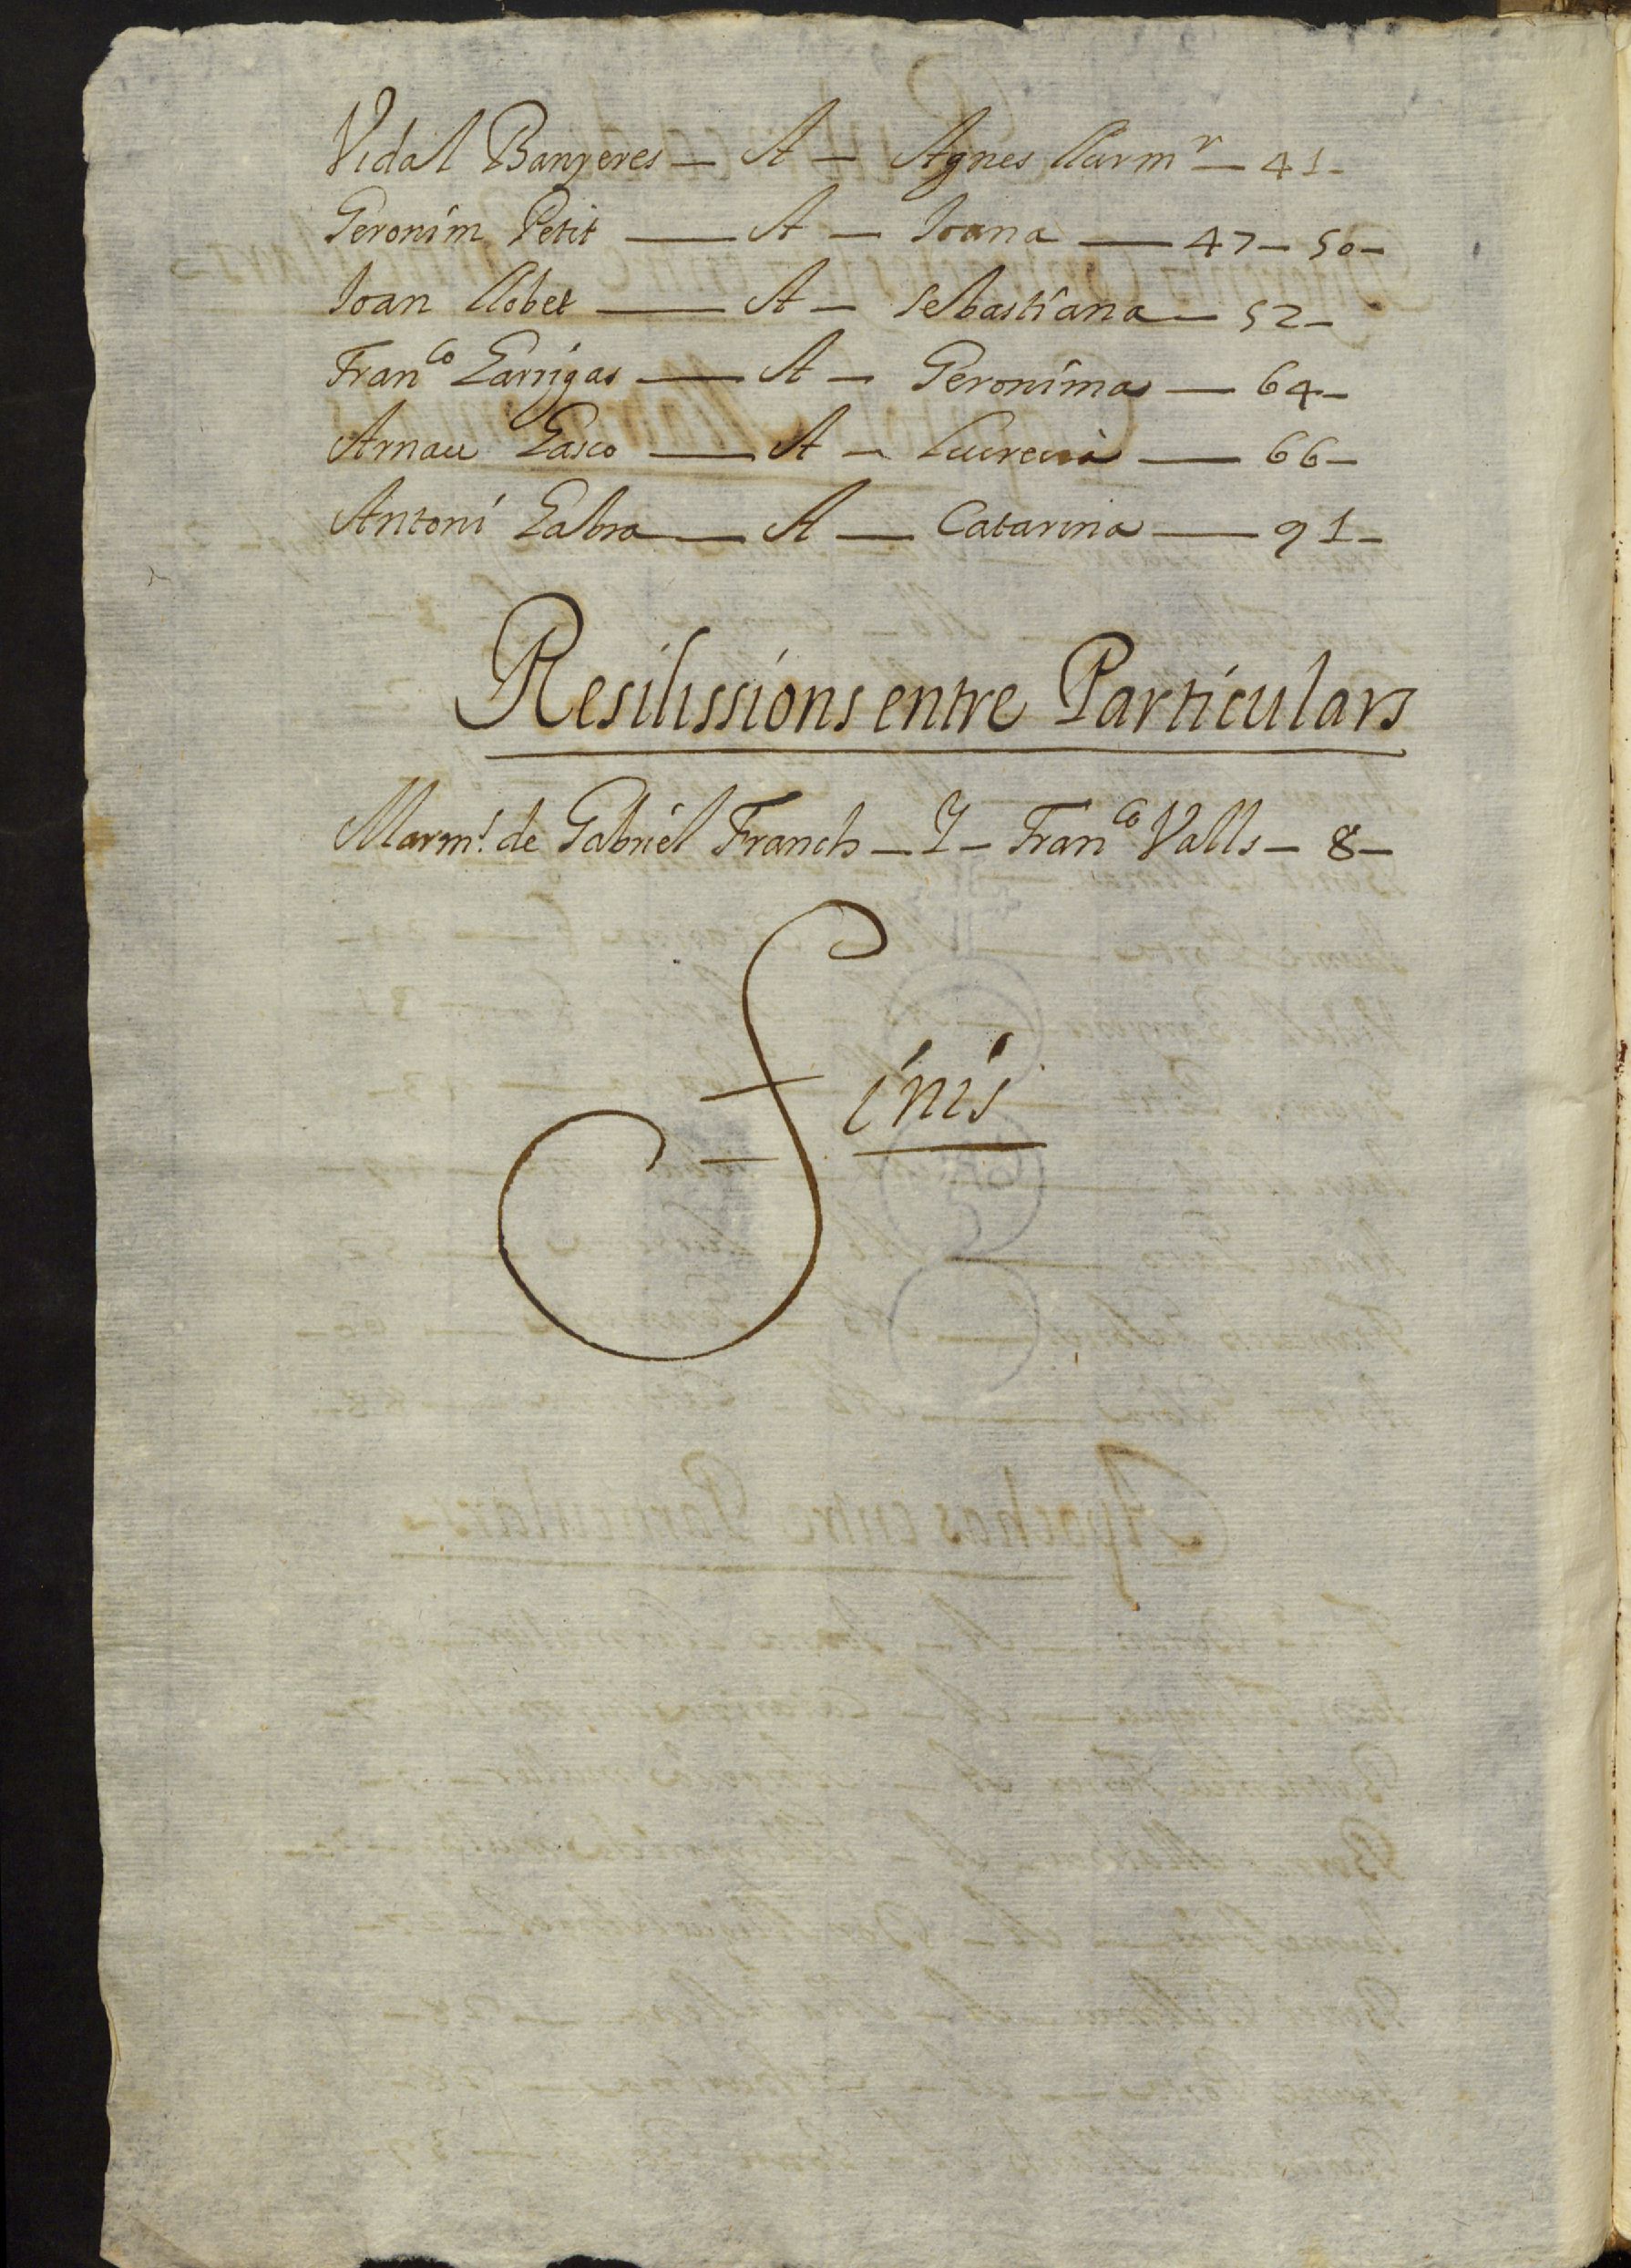 Vidal Banyeres — A — Agnes llurmr — 41 -
Geronim Petit — A — Joana — 47 — 50 -
Joan llobet — A — Sebastiana — 52 -
Franco Garrigas — A — Geronima — 64 -
Arnau Gasco — A — Lucrecia — 66 -
Antoni Galbra — A — Catarina — 91 -
Resilissions entre Particulars
Marml. de Gabriel Franch — I — Franco Valls — 8 -
Finis